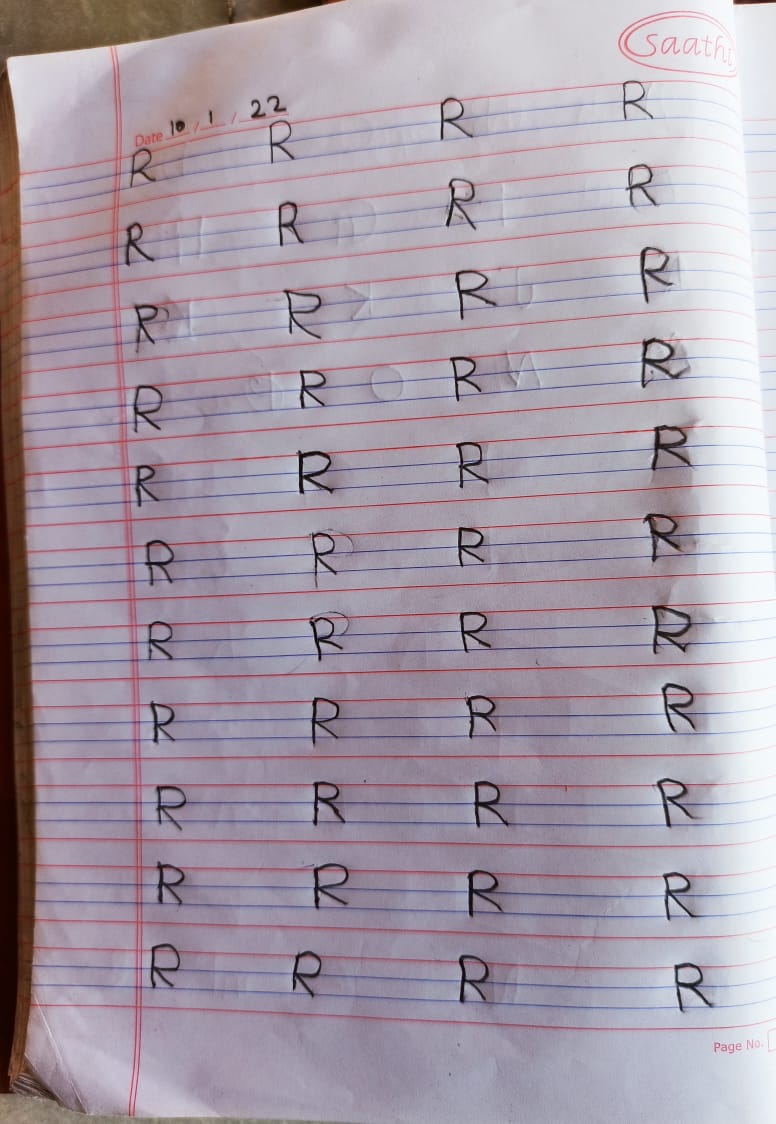 saathi
Date 10 / 1 / 22
R R R R
R R R R
R R R R
R R R R
R R R R
R R R R
R R R R
R R R R
R R R R
R R R R
R R R R
Page No.